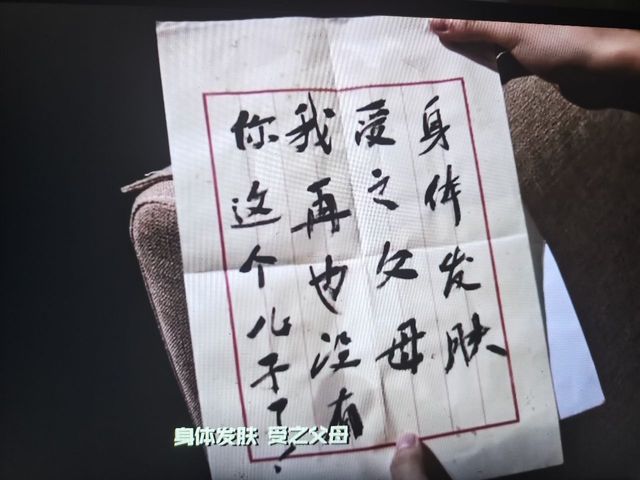 身体发肤
受之父母
我再也没有
你这个儿子了！
身体发肤 受之父母